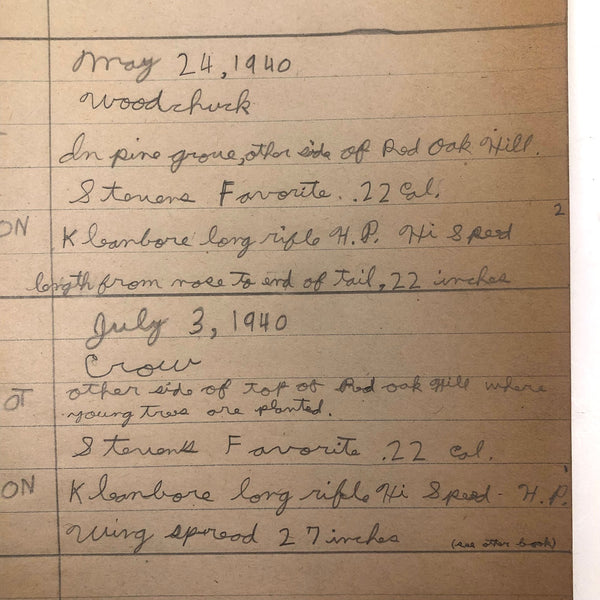 May 24, 1940
Woodchuck
In pine grove, other side of Red Oak Hill.
Stevens Favorite. .22 Cal.
2
ON Kleanbore long rifle H.P. Hi Speed
length from nose to end of tail, 22 inches
July 3, 1940
Crow
other side of top of Red oak Hill where
OT young trees are planted.
Stevens Favorite .22 cal.
ON Kleanbore long rifle Hi Speed - H.P.
Wing spread 27 inches (see other book)